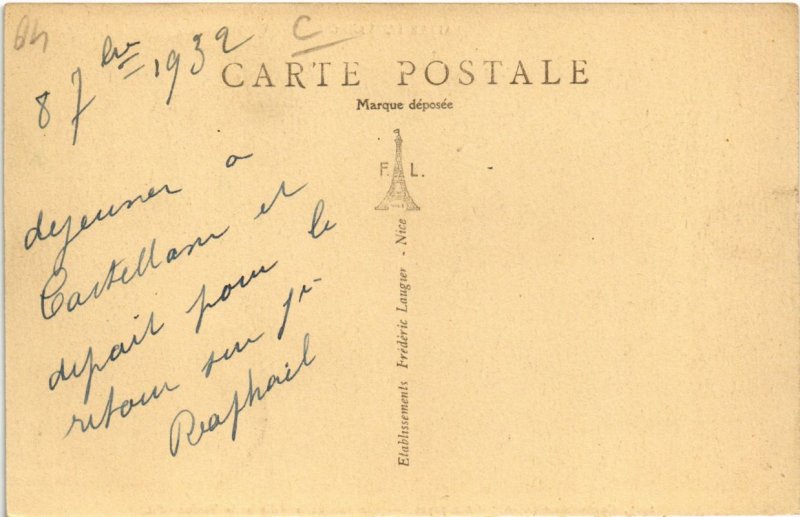 04
C
8 7bre 1932
CARTE POSTALE
Marque déposée
F. L.
dejeuner a
Castellane et
depait pour le
retour sur St
Raphail
Etablissements Frédéric Laugier - Nice